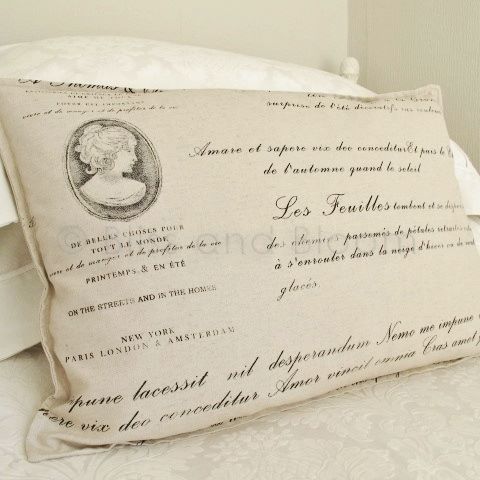 A Thomas &
vivre et de manger et de profiter de la vie
surprise de l'été décoratifs sur
Amare et sapere vix deo conceditur Et puis le
de l'automne quand le soleil
Les Feuilles tombent et se
des chemins parsemés de pétales
à s'enrouler dans la neige d'hiver ou de
glacés.
DE BELLES CHOSES POUR
TOUT LE MONDE
vivre et de manger et de profiter de la vie
PRINTEMPS & EN ÉTÉ
ON THE STREETS AND IN THE HOMES
NEW YORK
PARIS LONDON & AMSTERDAM
impune lacessit nil desperandum Nemo me impune
sapere vix deo conceditur Amor vincit omnia Cras amet